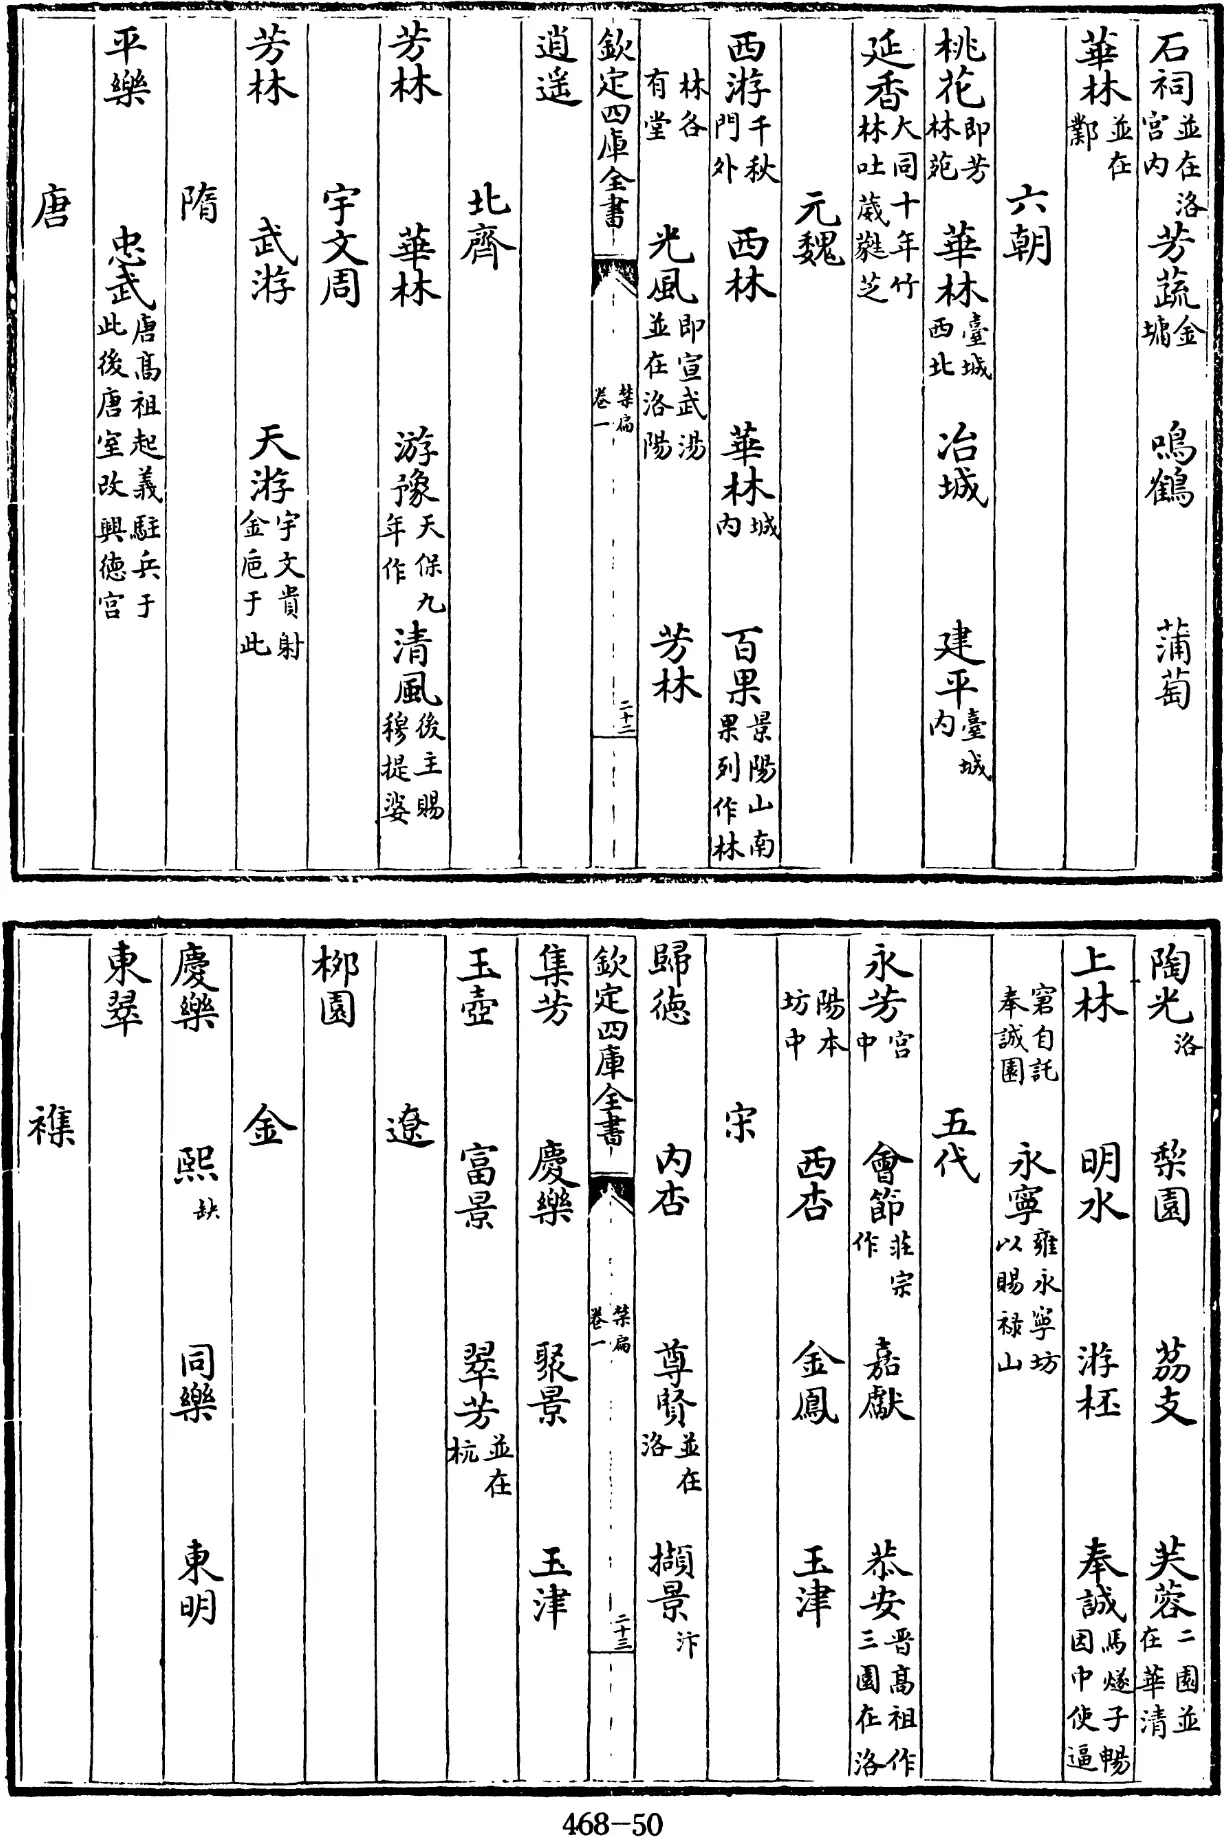 石祠並在洛宮内　芳蔬金墉　鳴鶴　蒲萄
華林並在鄴
六朝
桃花即芳林苑　華林臺城西北　冶城　建平臺城内
延香大同十年竹林吐葳蕤芝
元魏
西游千秋門外　西林　華林城内　百果景陽山南果列作林
林各有堂　光風即宣武湯並在洛陽　芳林
欽定四庫全書　禁扁卷一　二十二
逍遥
北齊
芳林　華林　游豫天保九年作　清風後主賜穆提婆
宇文周
芳林　武游　天游宇文貴射金巵于此
隋
平樂　忠武唐高祖起義駐兵于此後唐室改興徳宫
唐
陶光洛　梨園　荔支　芙蓉二園並在華清
上林　明水　游柸　奉誠馬燧子暢因中使逼
窘自託奉誠園　永寧雍永寧坊以賜禄山
五代
永芳宮中　會節莊宗作　嘉獻　恭安晋高祖作三園在洛
陽本坊中　西杏　金鳳　玉津
宋
歸徳　内杏　尊賢並在洛　擷景汴
欽定四庫全書　禁扁卷一　二十三
集芳　慶樂　聚景　玉津
玉壺　富景　翠芳並在杭
遼
栁園
金
慶樂　熙缺　同樂　東明
東翠
襍
468-50